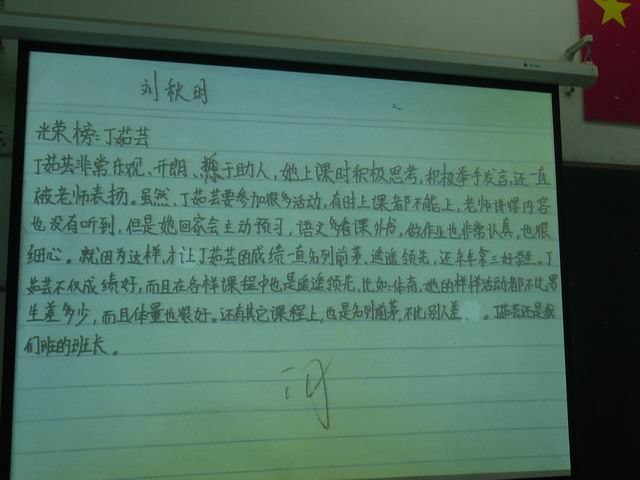 刘秋明
光荣榜:丁茹芸
丁茹芸非常乐观、开朗、乐于助人,她上课时积极思考,积极举手发言,还一直
被老师表扬。虽然,丁茹芸要参加很多活动,有时上课都不能上,老师讲得内容
也没有听到,但是她回家会主动预习,语文多看课外书,做作业也非常认真,也很
细心。就因为这样,才让丁茹芸的成绩一直名列前茅,遥遥领先,还年年拿三好学生。丁
茹芸不仅成绩好,而且在各样课程中也是遥遥领先,比如:体育,她的样样活动都不比男
生差多少,而且体量也很好。还有其它课程上,也是名列前茅,不比别人差。丁茹芸还是我
们班的班长。